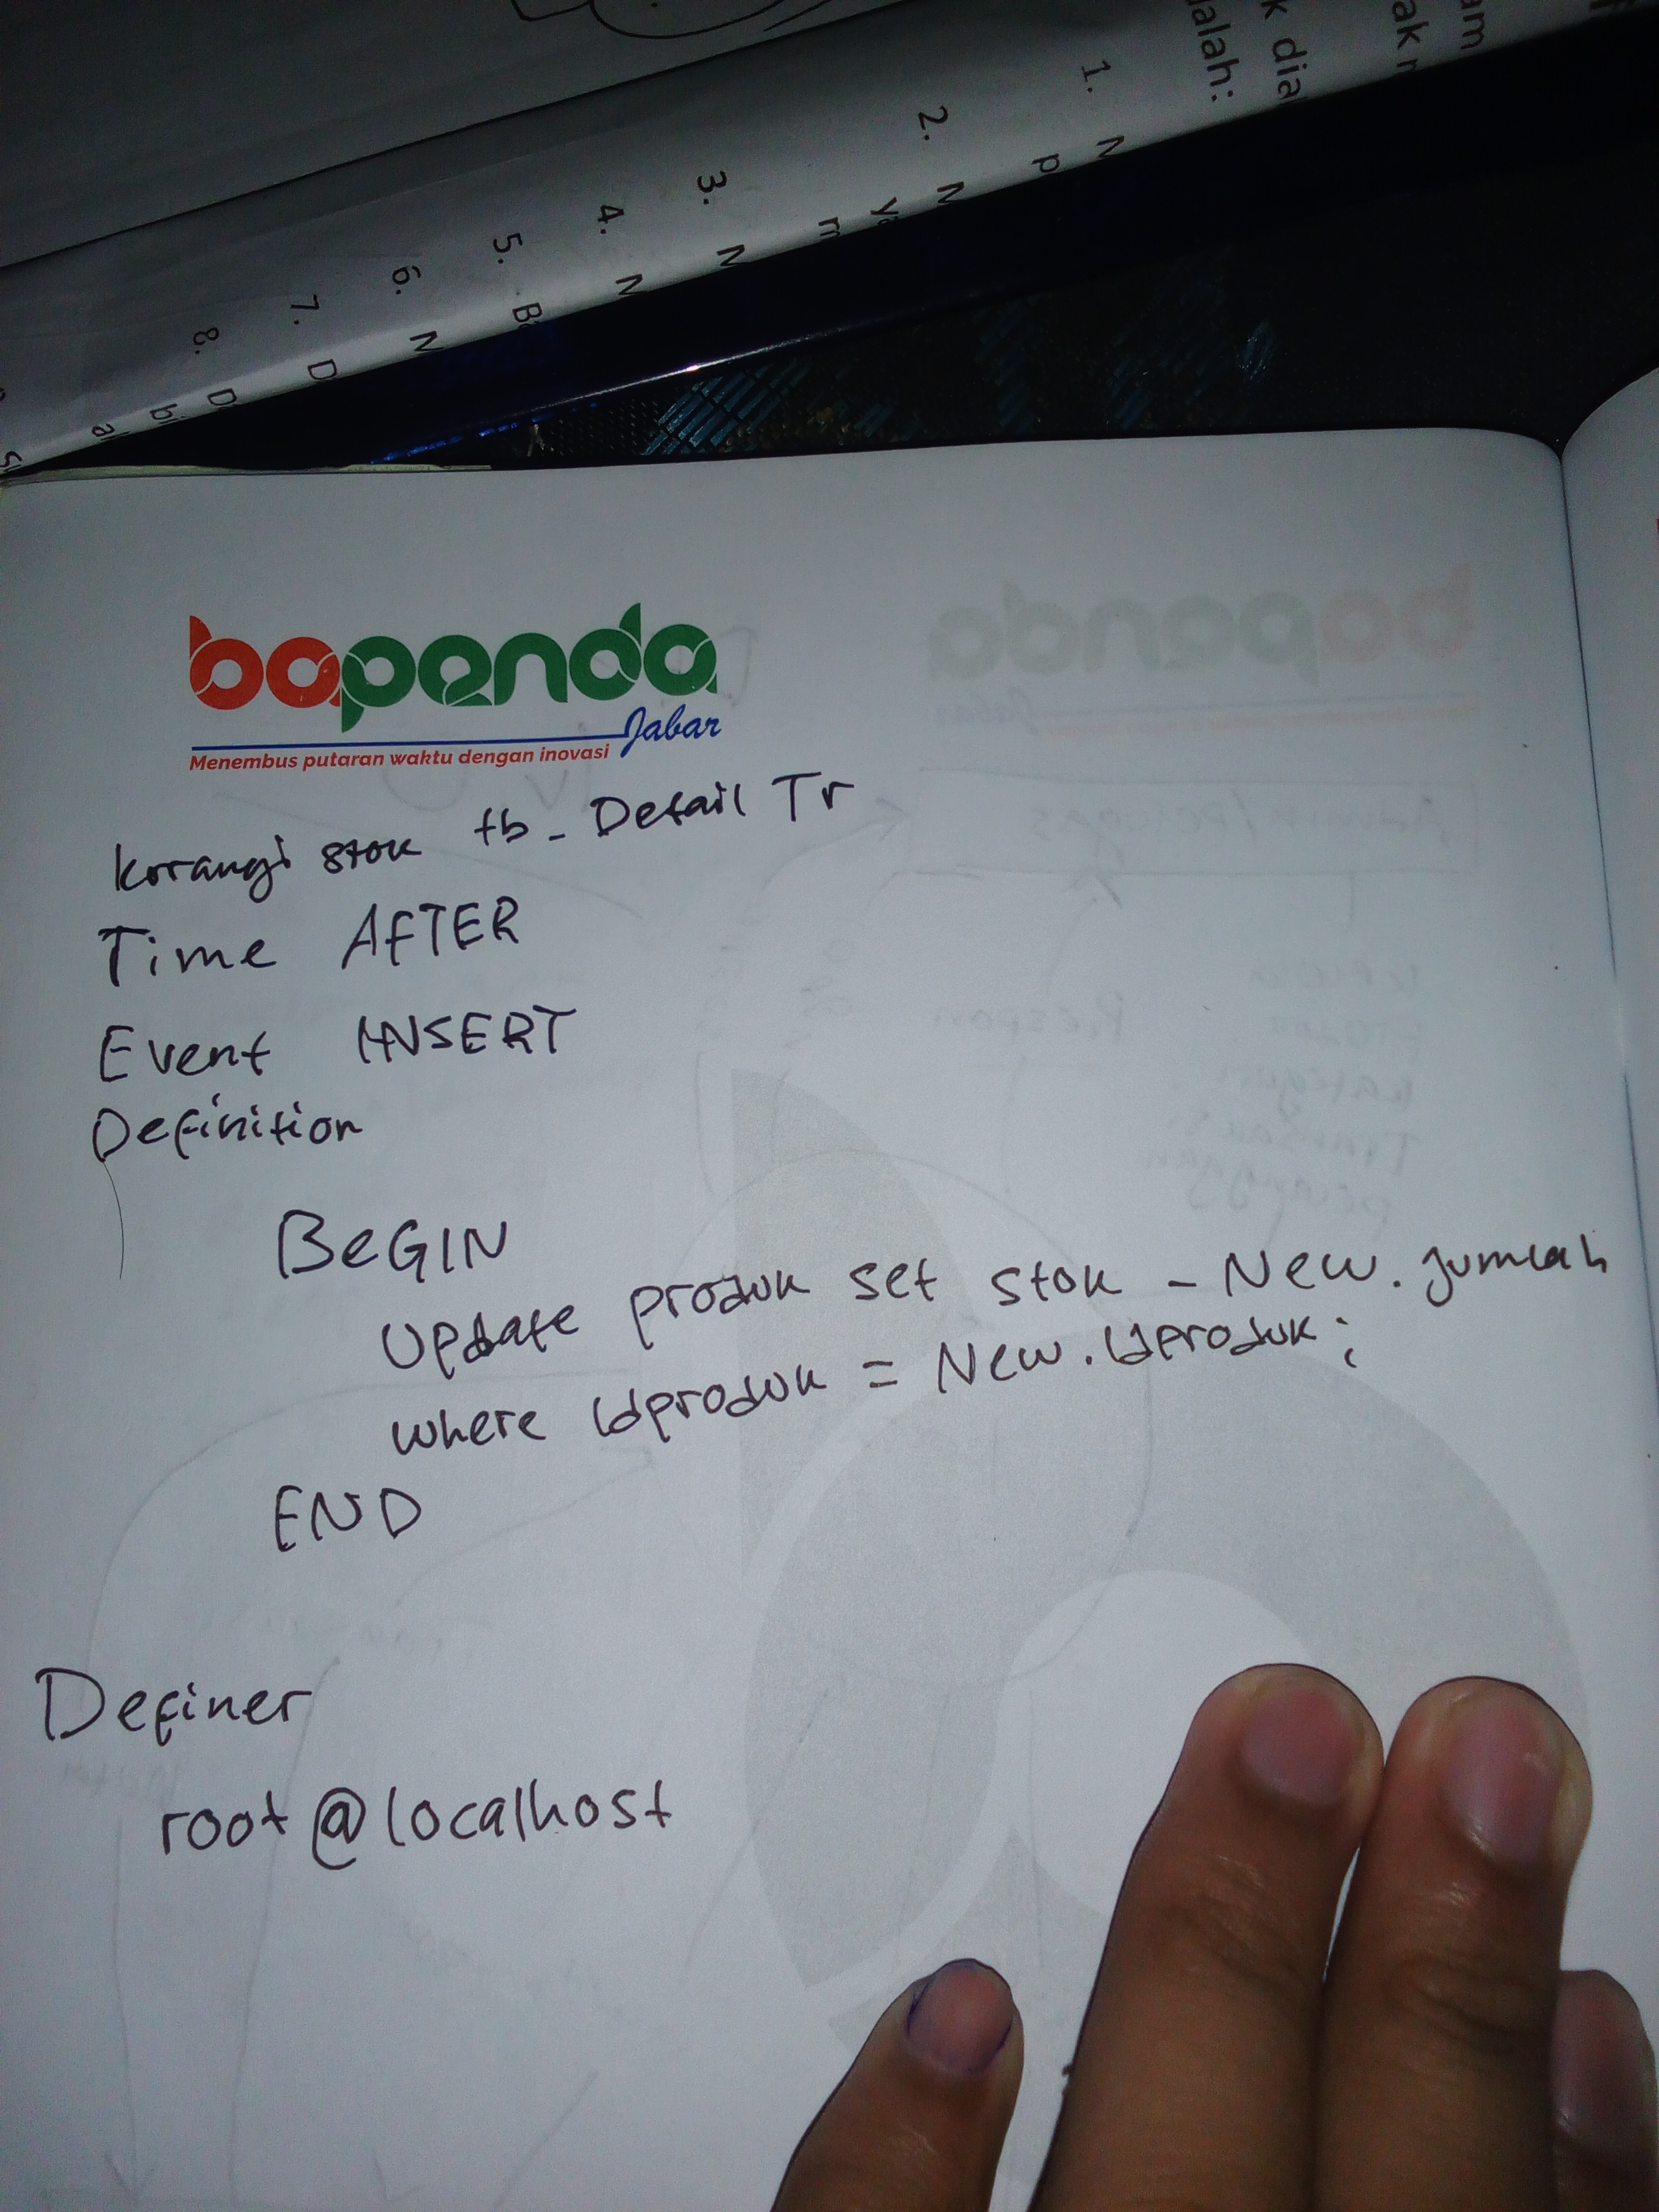 alah:
k dia
ak
am
1. N
p
2. N
y
m
3. N
4. N
5. B
6. N
7. D
8. D
bi
a
bapenda
Jabar
Menembus putaran waktu dengan inovasi
korangi stok tb_Detail Tr
Time AFTER
Event INSERT
Definition
BeGIN
Update produk set stok - New.jumlah
where idproduk = New.idproduk;
END
Definer
root@localhost